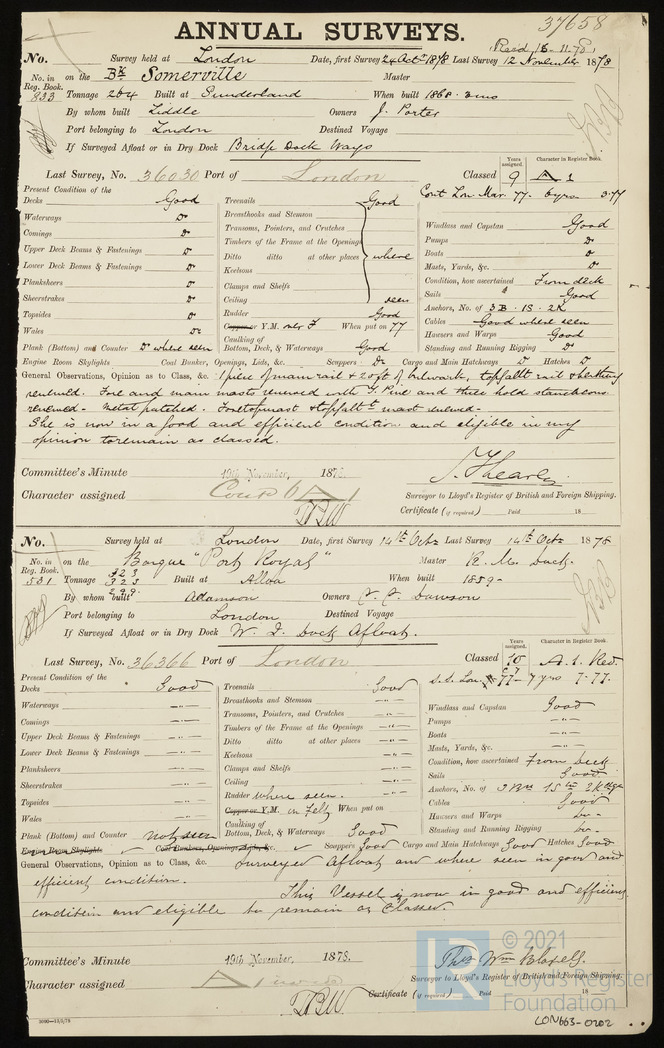 37658
ANNUAL SURVEYS.
Recd 15-11-78
No. Survey held at London Date, first Survey 24 Octr 1878 Last Survey 12 November 1878
No. in on the Bk Somerville Master
Reg. Book.
833 Tonnage 264 Built at Sunderland When built 1868.
By whom built Liddle Owners J. Porter
Port belonging to London Destined Voyage
If Surveyed Afloat or in Dry Dock Bridge Dock Ways
Last Survey, No. 36030 Port of London Classed 9 A 1
Years assigned. Character in Register Book.
Cont Lon Mar. 77. 6yrs 3.77
Present Condition of the
Decks Good
Waterways Do
Comings Do
Upper Deck Beams & Fastenings Do
Lower Deck Beams & Fastenings Do
Planksheers Do
Sheerstrakes Do
Topsides Do
Wales Do
Plank (Bottom) and Counter Do where seen
Treenails Good
Breasthooks and Stemson
Transoms, Pointers, and Crutches
Timbers of the Frame at the Openings
Ditto ditto at other places where
Keelsons
Clamps and Shelfs
Ceiling seen
Rudder Good
Copper or Y.M. over F When put on 77
Caulking of
Bottom, Deck, & Waterways Good
Windlass and Capstan Good
Pumps Do
Boats Do
Masts, Yards, &c. Do
Condition, how ascertained From deck
Sails Good
Anchors, No. of 3B. 1S. 2K
Cables Good where seen
Hawsers and Warps Good
Standing and Running Rigging Do
Engine Room Skylights Coal Bunker, Openings, Lids, &c. Scuppers Do Cargo and Main Hatchways Do Hatches Do
General Observations, Opinion as to Class, &c. 1 piece of main rail & 20 ft of bulwark, topgallt rail & sheathing
renewed. Fore and main masts renewed with P. Pine and three hold stancheons
renewed - metal patched. Foretopmast & topgallt mast renewed -
She is now in a good and efficient condition and eligible in my
opinion to remain as classed.
Committee's Minute 19th November, 1878.
Character assigned Cont 6 A 1
Surveyor to Lloyd's Register of British and Foreign Shipping.
Certificate (if required) Paid 18
No. Survey held at London Date, first Survey 14th Octr Last Survey 14th Octr 1878
No. in on the Barque "Port Royal" Master R. M. Jack.
Reg. Book.
531 Tonnage 323 323 299 Built at Alloa When built 1859-
By whom built Adamson Owners Dawson
Port belonging to London Destined Voyage
If Surveyed Afloat or in Dry Dock W. I. Dock Afloat.
Last Survey, No. 36366 Port of London Classed 10 A.1. Red.
Years assigned. Character in Register Book.
S.S. Lon. 77- 7 yrs 7.77.
Present Condition of the
Decks Good
Waterways -"-
Comings -"-
Upper Deck Beams & Fastenings -"-
Lower Deck Beams & Fastenings -"-
Planksheers -"-
Sheerstrakes -"-
Topsides -"-
Wales -"-
Plank (Bottom) and Counter not seen
Treenails Good
Breasthooks and Stemson -"-
Transoms, Pointers, and Crutches -"-
Timbers of the Frame at the Openings -"-
Ditto ditto at other places -"-
Keelsons -"-
Clamps and Shelfs -"-
Ceiling -"-
Rudder where seen.
Copper or Y.M. on Felt When put on
Caulking of
Bottom, Deck, & Waterways Good
Windlass and Capstan Good
Pumps -"-
Boats -"-
Masts, Yards, &c. -"-
Condition, how ascertained From deck
Sails Good
Anchors, No. of 3 Brs 1 Str 2 Kdges
Cables Good
Hawsers and Warps Do-
Standing and Running Rigging Do-
Engine Room Skylights Coal Bunkers, Openings, Lids, &c. Scuppers Good Cargo and Main Hatchways Good Hatches Good
General Observations, Opinion as to Class, &c. Surveyed Afloat and where seen in good and
efficient condition.
This Vessel is now in good and efficient
condition and eligible to remain as Classed.
Committee's Minute 19th November, 1878.
Character assigned A 1
Thos Wm Blaxely.
Surveyor to Lloyd's Register of British and Foreign Shipping.
Certificate (if required) Paid 18
LR
© 2021
Lloyd's Register
Foundation
LON663-0202